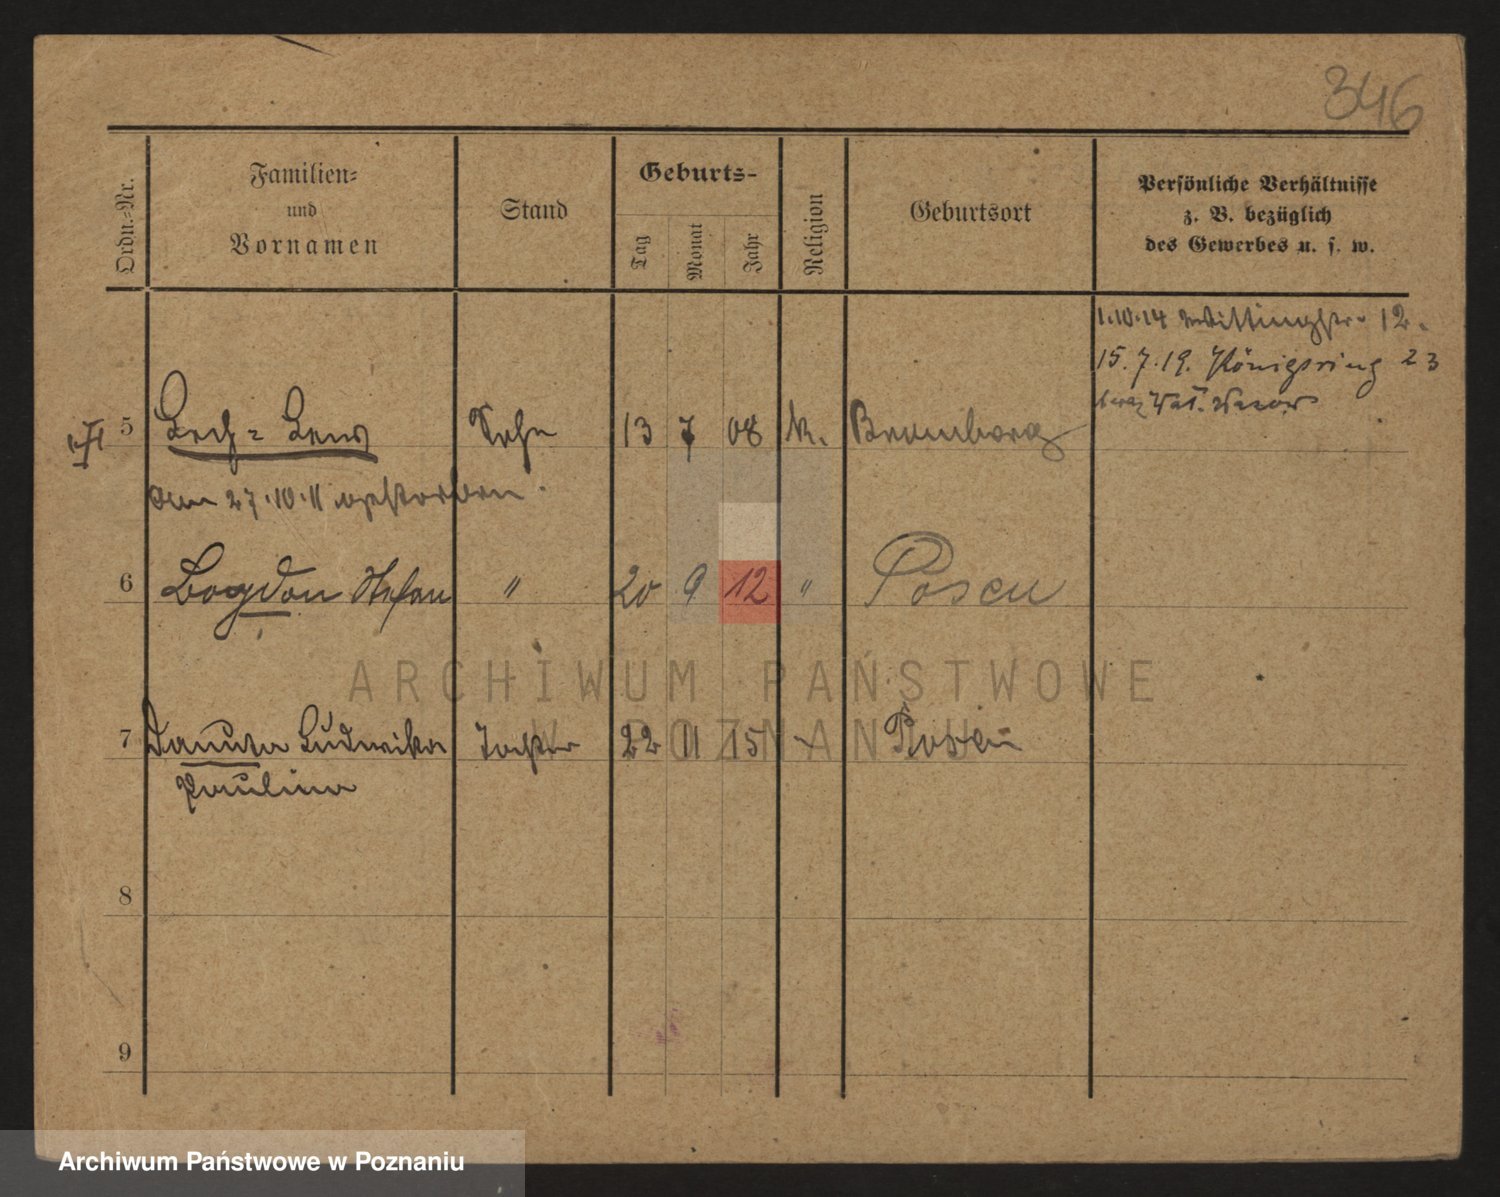 346
Ordn.-Nr.
Familien-
und
Vornamen
Stand
Geburts-
Tag
Monat
Jahr
Religion
Geburtsort
Persönliche Verhältnisse
z. B. bezüglich
des Gewerbes u. s. w.
1.10.14 Wittingstr. 12.
15.7.19. Königsring 23
5 Lech = Sohn 13 7 08 k. Bromberg
am 27.10.11 verstorben.
6 Bogdan Stefan " 20 9 12 " Posen
7 Danuta Ludwika Tochter 22 11 15 Posen
Paulina
8
9
ARCHIWUM PAŃSTWOWE
W POZNANIU
Archiwum Państwowe w Poznaniu